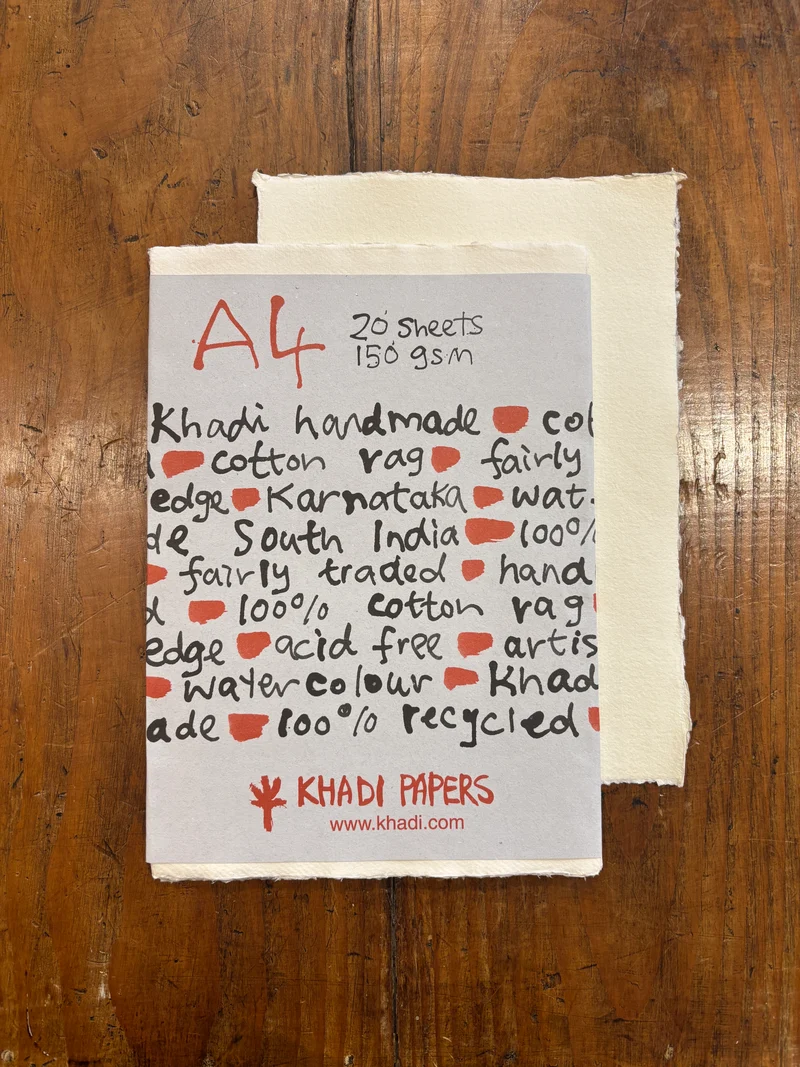 A4
20 sheets
150 gsm
Khadi handmade cot
cotton rag fairly
edge Karnataka wat
de South India 100%
fairly traded hand
d 100% cotton rag
edge acid free artis
watercolour Khad
ade 100% recycled
KHADI PAPERS
www.khadi.com